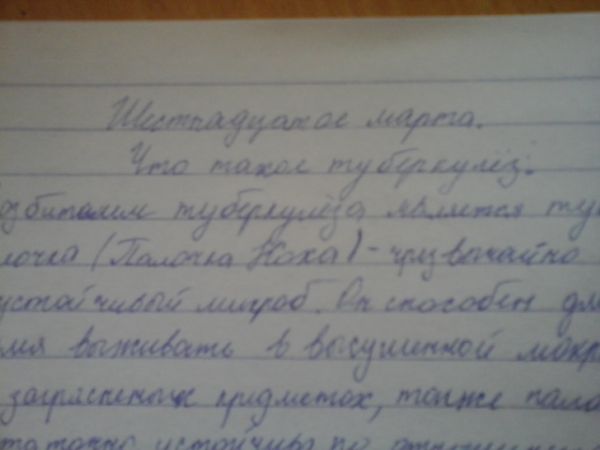 Шестнадцатое марта.
Что такое туберкулёз.
збителем туберкулёза является ту
лочка (Палочка Коха) - чрезвычайно
устойчивый микроб. Он способен дл
мя выживать в высушенной мокр
загрязненных предметах, также пало
статочно устойчива по отношению